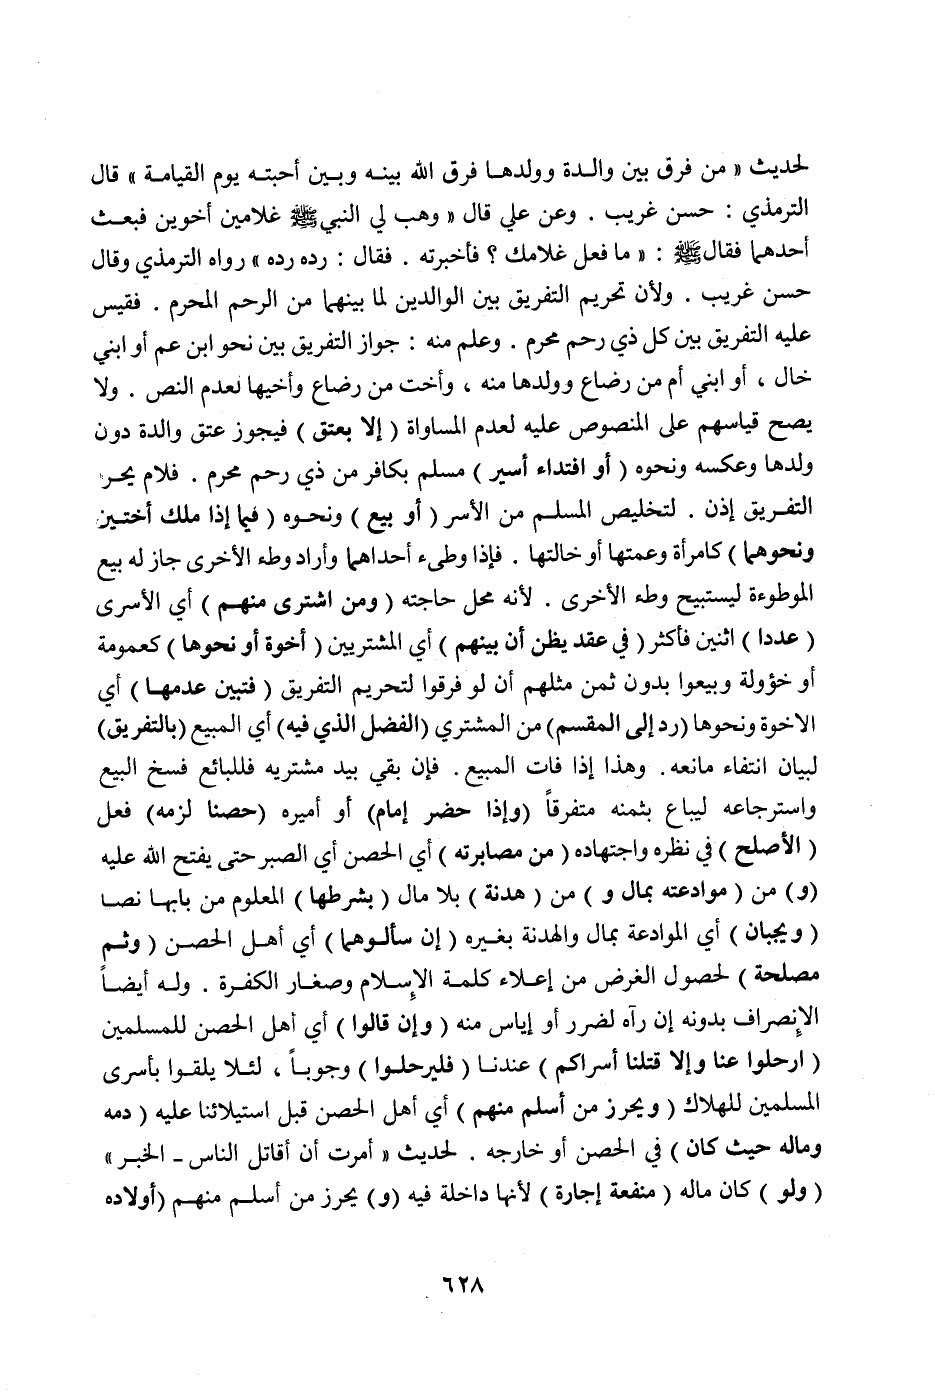 لحديث « من فرق بين والدة وولدها فرق الله بينه وبين أحبته يوم القيامة » قال
الترمذي : حسن غريب . وعن علي قال « وهب لي النبي ﷺ غلامين أخوين فبعت
أحدهما فقال ﷺ : « ما فعل غلامك ؟ فأخبرته . فقال : رده رده » رواه الترمذي وقال
حسن غريب . ولأن تحريم التفريق بين الوالدين لما بينهما من الرحم المحرم . فقيس
عليه التفريق بين كل ذي رحم محرم . وعلم منه : جواز التفريق بين نحو ابن عم أو ابني
خال ، أو ابني أم من رضاع وولدها منه ، وأخت من رضاع وأخيها لعدم النص . ولا
يصح قياسهم على المنصوص عليه لعدم المساواة ( إلا بعتق ) فيجوز عتق والدة دون
ولدها وعكسه ونحوه ( أو افتداء أسير ) مسلم بكافر من ذي رحم محرم . فلام يحر
التفريق إذن . لتخليص المسلم من الأسر ( أو بيع ) ونحوه ( فيما إذا ملك أختين
ونحوهما ) كامرأة وعمتها أو خالتها . فإذا وطىء أحداهما وأراد وطء الأخرى جاز له بيع
الموطوءة ليستبيح وطء الأخرى . لأنه محل حاجته ( ومن اشترى منهم ) أي الأسرى
( عددا ) اثنين فأكثر ( في عقد يظن أن بينهم ) أي المشتريين ( أخوة أو نحوها ) كعمومة
أو خؤولة وبيعوا بدون ثمن مثلهم أن لو فرقوا لتحريم التفريق ( فتبين عدمها ) أي
الاخوة ونحوها (رد إلى المقسم) من المشتري (الفضل الذي فيه) أي المبيع (بالتفريق)
لبيان انتفاء مانعه. وهذا إذا فات المبيع. فإن بقي بيد مشتريه فللبائع فسخ البيع
واسترجاعه ليباع بثمنه متفرقاً (وإذا حضر إمام) أو أميره (حصنا لزمه) فعل
( الأصلح ) في نظره واجتهاده ( من مصابرته ) أي الحصن أي الصبر حتى يفتح الله عليه
(و) من ( موادعته بمال و ) من ( هدنة ) بلا مال ( بشرطها ) المعلوم من بابها نصا
( ويجبان ) أي الموادعة بمال والهدنة بغيره ( إن سألوهما ) أي أهل الحصن ( وثم
مصلحة ) لحصول الغرض من إعلاء كلمة الإسلام وصغار الكفرة . وله أيضاً
الإنصراف بدونه إن رآه لضرر أو إياس منه ( وإن قالوا ) أي أهل الحصن للمسلمين
( ارحلوا عنا وإلا قتلنا أسراكم ) عندنا ( فليرحلوا ) وجوباً ، لئلا يلقوا بأسرى
المسلمين للهلاك ( ويحرز من أسلم منهم ) أي أهل الحصن قبل استيلائنا عليه ( دمه
وماله حيث كان ) في الحصن أو خارجه . لحديث « أمرت أن أقاتل الناس ـ الخبر »
( ولو ) كان ماله ( منفعة إجارة ) لأنها داخلة فيه (و) يحرز من أسلم منهم (أولاده
٦٢٨